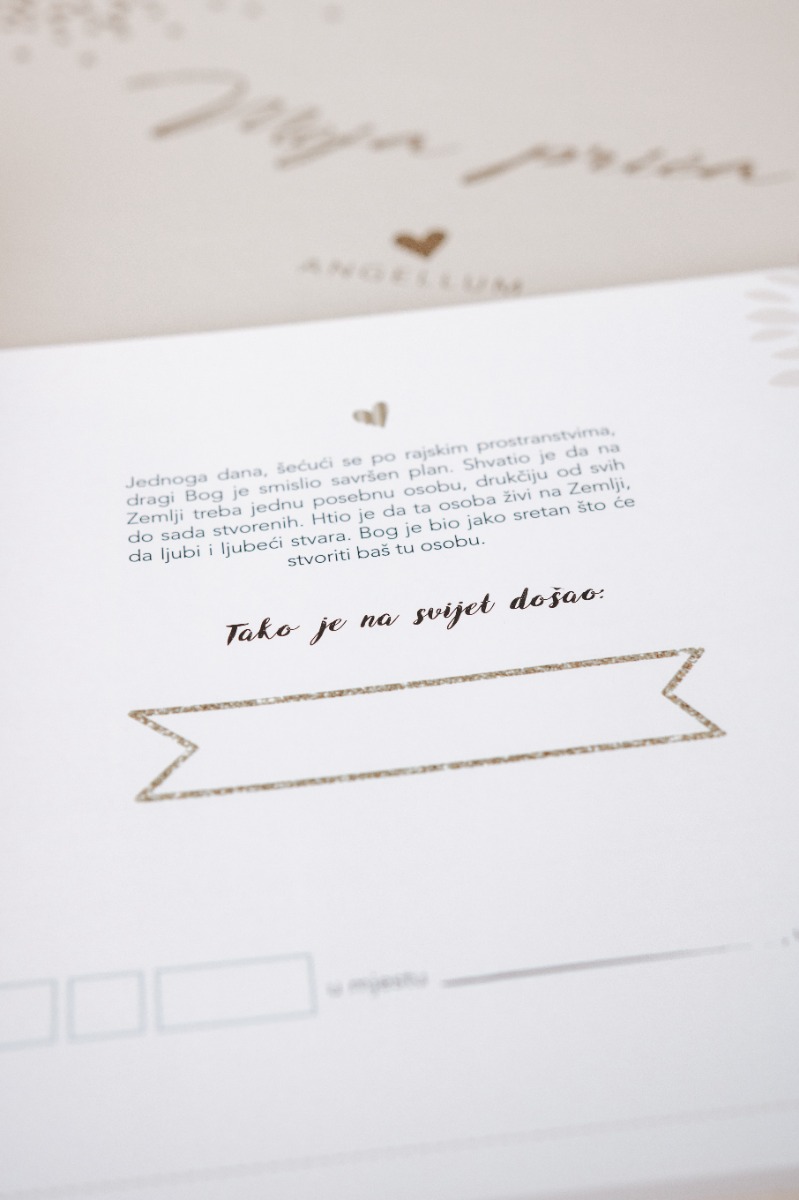 Moja priča
ANGELLUM
Jednoga dana, šećući se po rajskim prostranstvima,
dragi Bog je smislio savršen plan. Shvatio je da na
Zemlji treba jednu posebnu osobu, drukčiju od svih
do sada stvorenih. Htio je da ta osoba živi na Zemlji,
da ljubi i ljubeći stvara. Bog je bio jako sretan što će
stvoriti baš tu osobu.
Tako je na svijet došao:
u mjestu